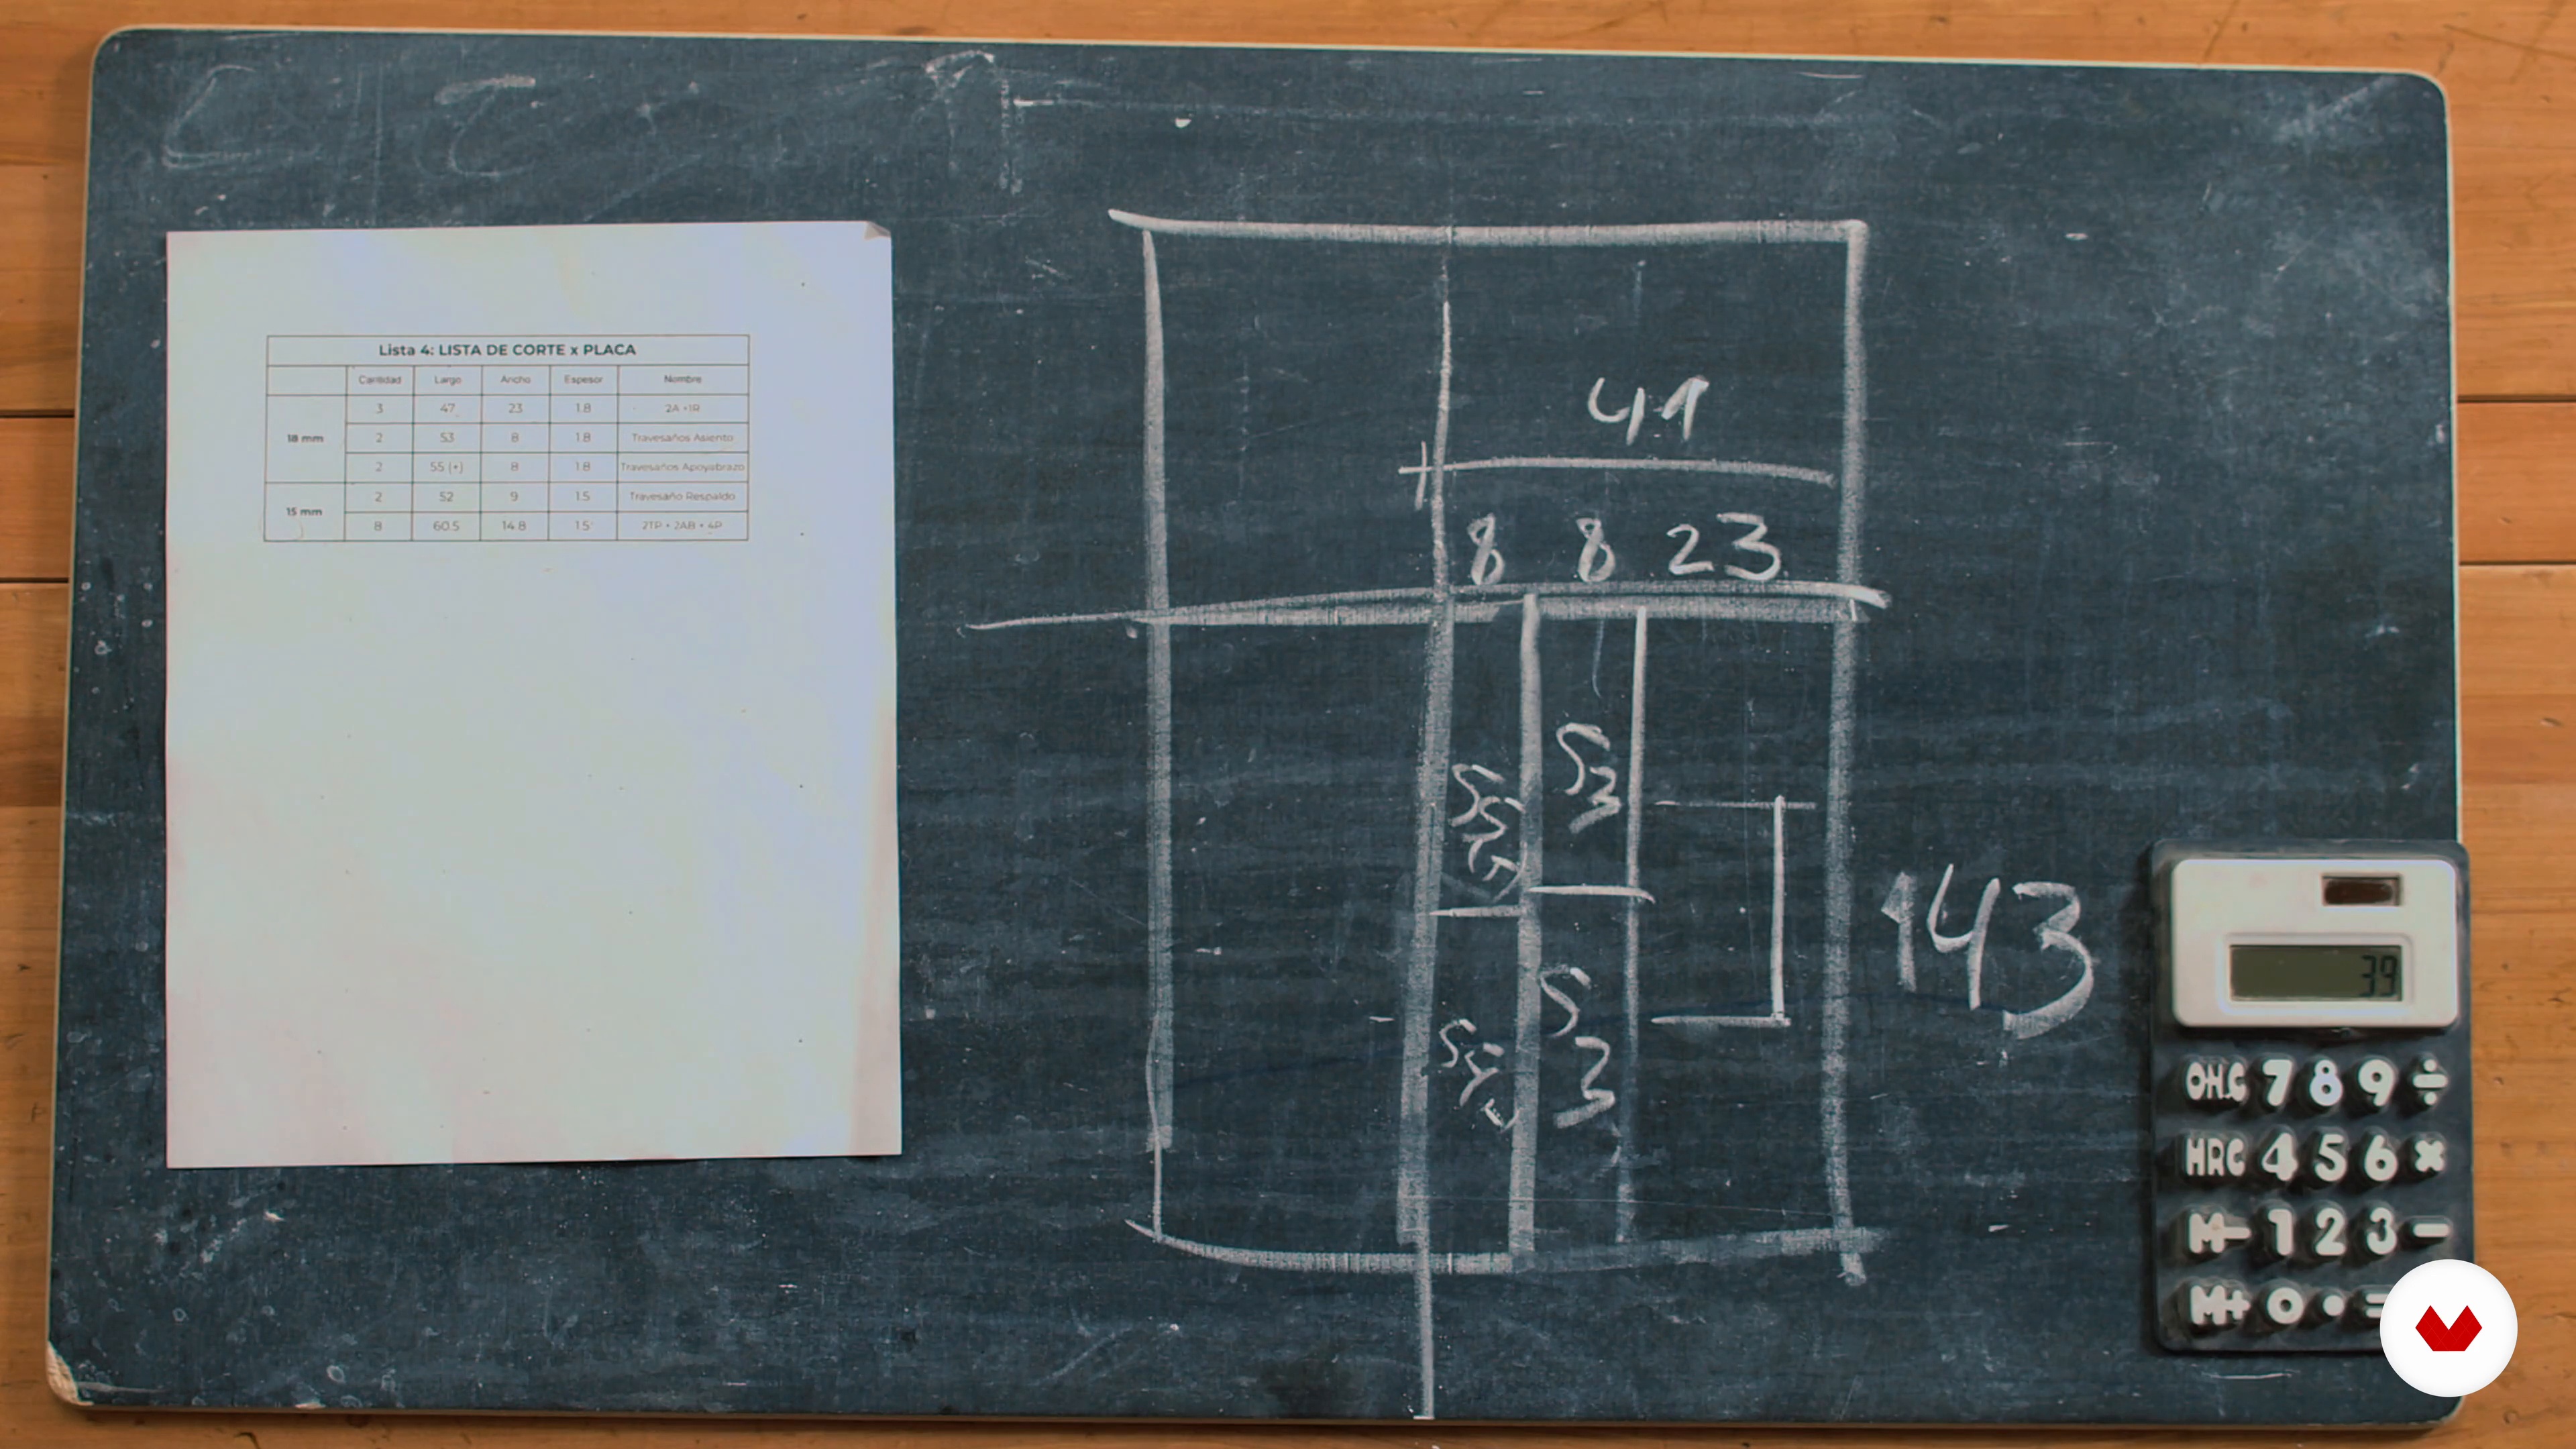 Lista 4: LISTA DE CORTE x PLACA
Cantidad Largo Ancho Espesor Nombre
18 mm
3 47 23 1.8 2A +1R
2 53 8 1.8 Travesaños Asiento
2 55 (+) 8 1.8 Travesaños Apoyabrazo
15 mm
2 52 9 1.5 Travesaño Respaldo
8 60.5 14.8 1.5 2TP + 2AB + 4P
41
8 8 23
55(+) 53
53
143
39
ON.C 7 8 9 ÷
MRC 4 5 6 ×
M- 1 2 3 -
M+ 0 • =